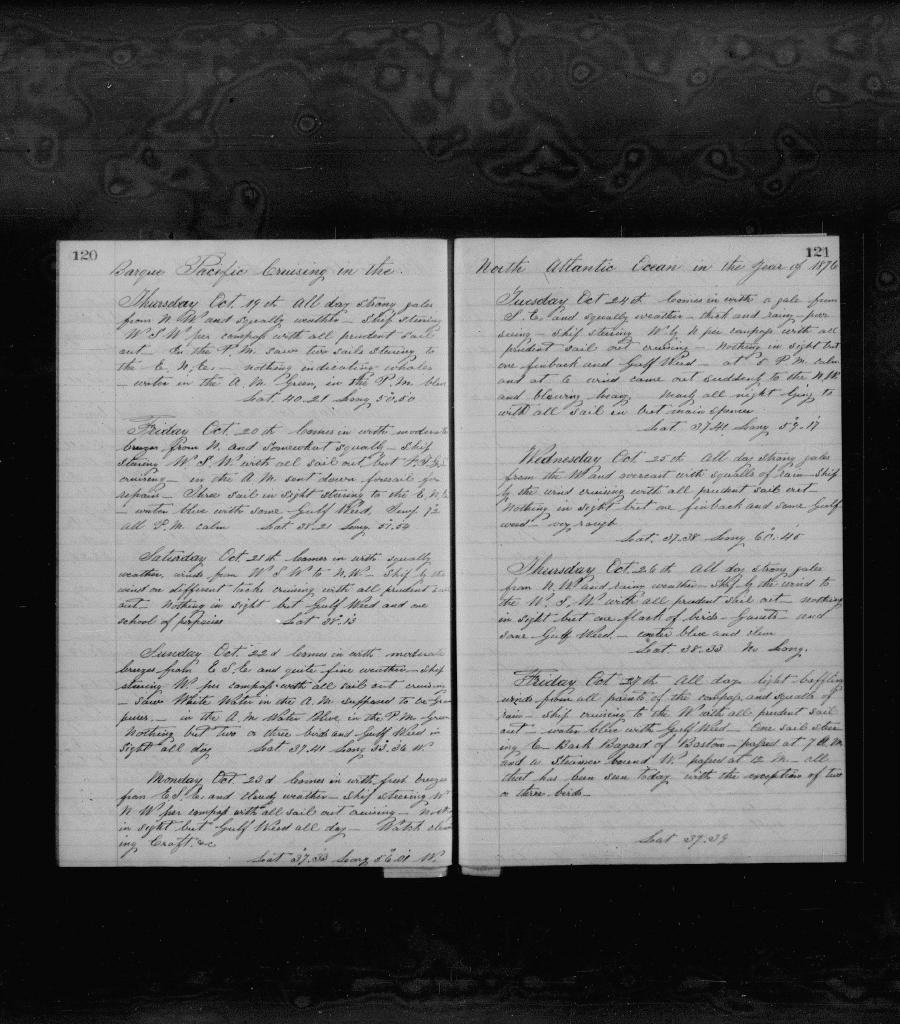 120
Barque Pacific Cruising in the
Thursday Oct. 19th All day strong gales
from N W and squally weather - Ship steering
W S W per compass with all prudent sail
out - In the P.M. saw two sails steering to
the E. N. E. - nothing indicating whales
- water in the A. M. Green, in the P.M. blue
Lat 40.21 Long 50.50
Friday Oct. 20th Comes in with moderate
breezes from N. and somewhat squally - Ship
steering W. S. W with all sail out but
cruising - in the A.M. sent down foresail for
repairs - Three sail in sight steering to the E. N. E
- water blue with some Gulf Weed. Temp 72
all P.M. calm Lat 38.21 Long. 51.54
Saturday Oct. 21st Comes in with squally
weather, winds from W S W to N.W. - Ship by the
wind on different tacks cruising with all prudent sail
out - Nothing in sight but Gulf Weed and one
school of porpoises Lat 38.13
Sunday Oct. 22d Comes in with moderate
breezes from E S. E and quite fine weather - Ship
steering W per compass with all sail out cruising
- Saw White Water in the A.M. supposed to be Gram
puses. - in the A.M. Water Blue, in the P.M. Green
Nothing but two or three birds and Gulf Weed in
sight all day Lat 37.41 Long 53.36 W.
Monday Oct. 23d Comes in with fresh breezes
from E S. E. and cloudy weather - Ship steering W
N W per compass with all sail out cruising -
in sight but Gulf Weed all day - Watch clean
ing Craft. &c
Lat 37.33 Long 56.01 W.
121
North Atlantic Ocean in the year of 1876
Tuesday Oct 24th Comes in with a gale from
S. E. and squally weather - thick and rainy -
- Ship steering W. by N per compass with all
prudent sail out cruising - Nothing in sight but
one finback and Gulf Weed - at 5 P.M. calm
and at 6 wind came out suddenly to the N.W.
and blowing heavy. Nearly all night lying to
with all sail in but main spencer
Lat. 37.41 Long 59.17
Wednesday Oct 25th All day strong gales
from the W and overcast with squalls of rain - Ship
by the wind cruising with all prudent sail out
Nothing in sight but one finback and some Gulf
weed - very rough
Lat. 37.38 Long 60.40
Thursday Oct. 26th All day strong gales
from N. W and rainy weather - Ship by the wind to
the W. S. W with all prudent sail out - nothing
in sight but one flock of birds - Ganets - and
some Gulf Weed. - water blue and clear
Lat. 38.33 No Long.
Friday Oct 27th All day light baffling
winds from all points of the compass and squalls of
rain - Ship cruising to the W with all prudent sail
out - water blue with Gulf Weed - One sail steer
ing E. Bark Bogart of Boston - passed at 7 A.M
and a Steamer bound W passed at 12 M. - all
that has been seen today with the exception of two
or three birds -
Lat 37.39